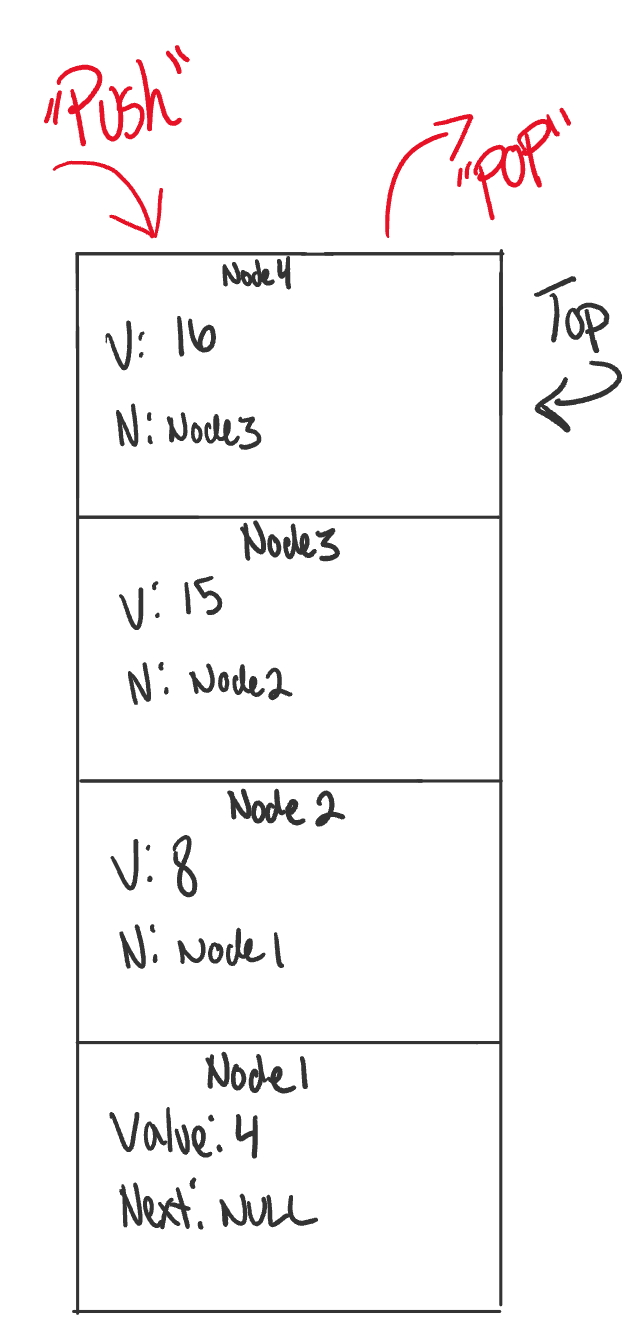 "Push"
"POP"
Node4
V: 16
N: Node3
Top
Node3
V: 15
N: Node2
Node 2
V: 8
N: Node1
Node1
Value: 4
Next: NULL